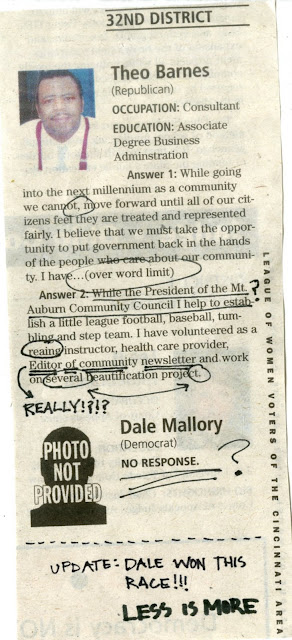 32ND DISTRICT
Theo Barnes
(Republican)
OCCUPATION: Consultant
EDUCATION: Associate
Degree Business
Adminstration
Answer 1: While going
into the next millennium as a community
we cannot, move forward until all of our cit-
izens feel they are treated and represented
fairly. I believe that we must take the oppor-
tunity to put government back in the hands
of the people who care about our commun-
ty. I have...(over word limit)
Answer 2: While the President of the Mt. ?
Auburn Community Council I help to estab-
lish a little league football, baseball, tum-
bling and step team. I have volunteered as a
reaing instructor, health care provider,
Editor of community newsletter and work
on several beautification project.
REALLY!?!?
PHOTO
NOT
PROVIDED
Dale Mallory
(Democrat)
NO RESPONSE. ?
UPDATE: DALE WON THIS
RACE!!!
LESS IS MORE
LEAGUE OF WOMEN VOTERS OF THE CINCINNATI AREA